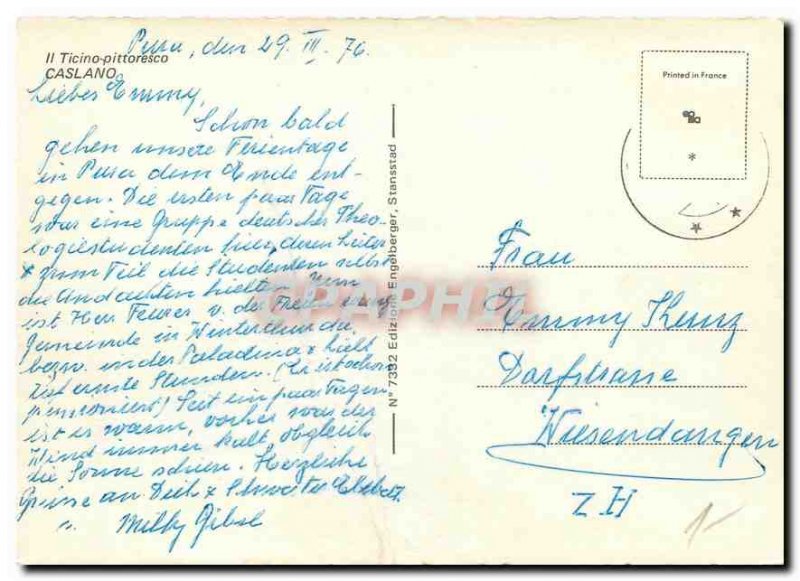 Il Ticino pittoresco
CASLANO
Pura, den 29. III. 76
Liebes Emmy,
Schon bald
gehen unsere Ferientage
in Pura dem Ende ent-
gegen. Die ersten paar Tage
war eine Gruppe deutscher Theo-
logiestudenten hier, deren Leiter
+ zum Teil die Studenten selbst
die Andachten hielten. Nun
ist Herr v. der
Gemeinde in Winterthur, die
bezw. in der hielt
ernste Stunden. (Er ist schon
pensioniert) Seit ein paar Tagen
ist es warm, vorher war der
Wind immer kalt, obgleich
die Sonne schien. Herzliche
Grüsse an Dich + Schwester
Milly
N° 7332 Edizione Engelberger, Stansstad
Printed in France
*
Frau
Emmy Kunz
Dorfstrasse
Wiesendangen
ZH
1-